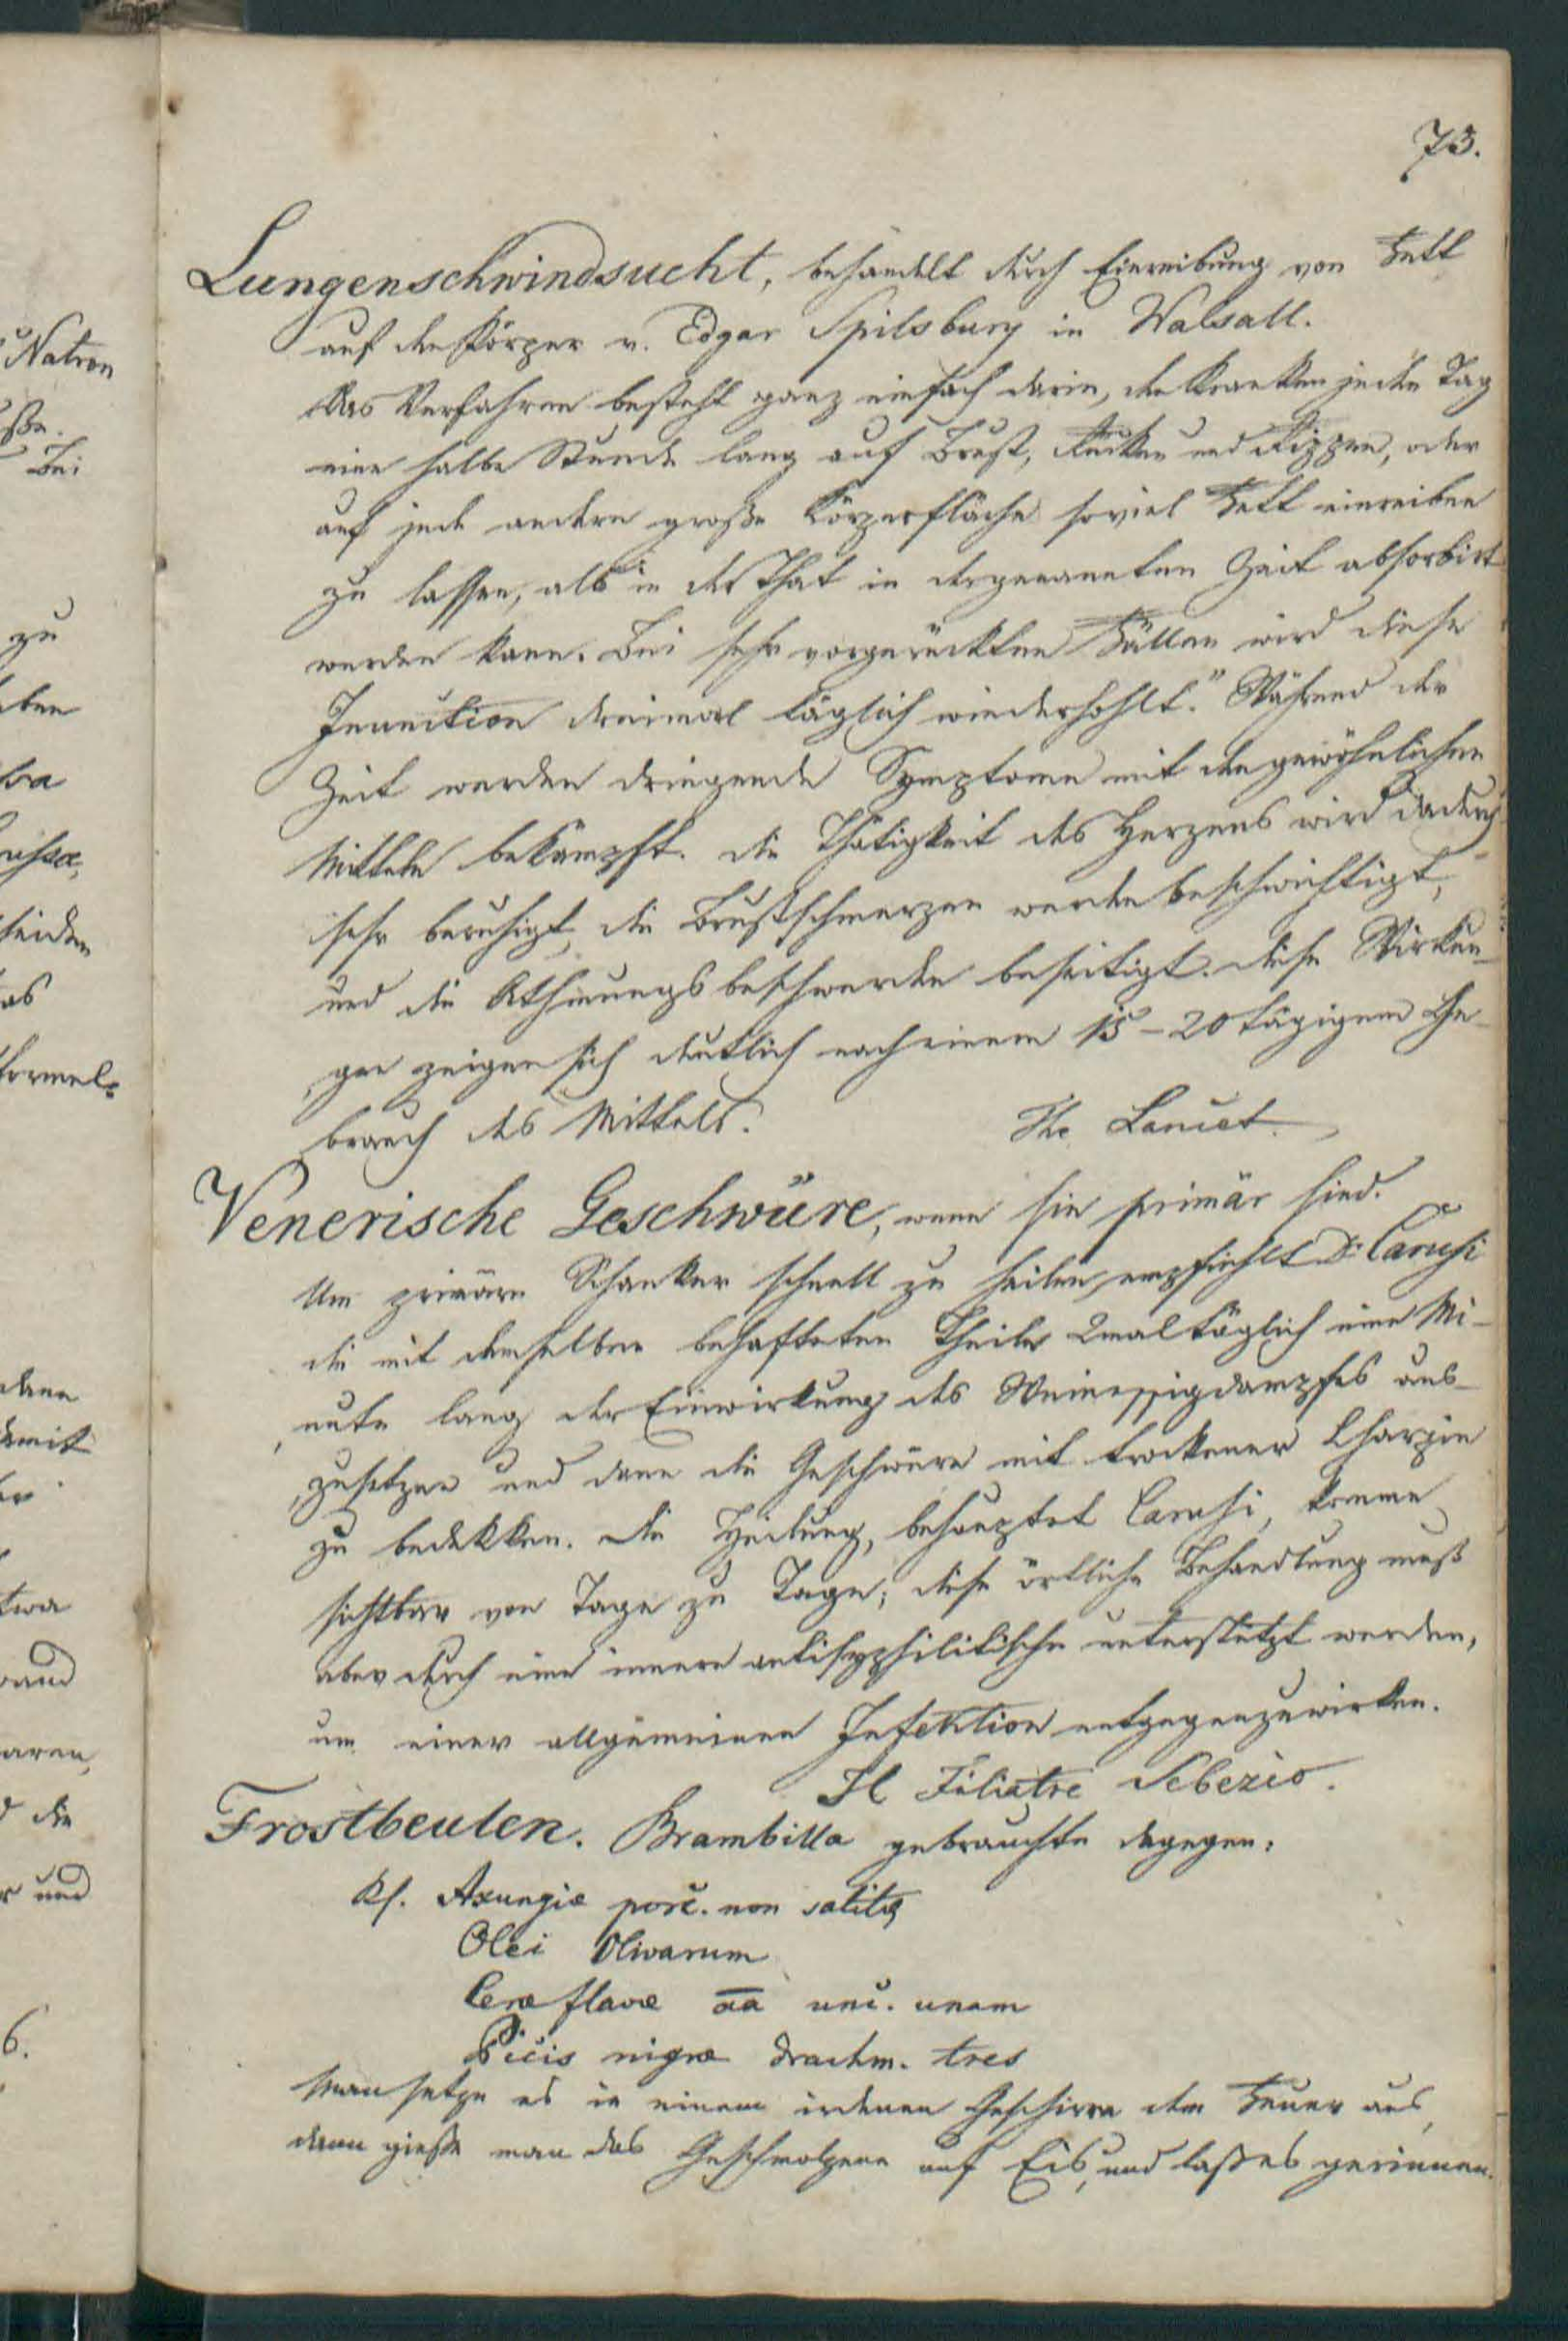 73.
Lungenschwindsucht, behandelt durch Einreibung von Fett
auf den Körper v. Edgar Spilsbury in Walsall.
Das Verfahren besteht ganz einfach darin, den Kranken jeden Tag
eine halbe Stunde lang auf Brust, Rücken und Rippen, oder
auf jede andere große Körperfläche soviel Fett einreiben
zu lassen, als in der That in der genannten Zeit absorbirt
werden kann. Bei sehr vorgerückten Fällen wird diese
Inunction dreimal täglich wiederhohlt." Während der
Zeit werden dringende Symptome mit den gewöhnlichen
Mitteln bekämpft. Die Thätigkeit des Herzens wird dadurch
sehr beruhigt, die Brustschmerzen werden beschwichtigt,
und die Athmungsbeschwerden beseitigt. Diese Wirkun-
gen zeigen sich deutlich nach einem 15-20tägigem Ge-
brauch des Mittels. The Lancet.
Venerische Geschwüre, wenn sie primär sind.
Um primäre Schanker schnell zu heilen, empfiehlt Dr. Carusi
die mit demselben behafteten Theile 2mal täglich eine Mi-
nute lang der Einwirkung des Weinessigdampfes aus-
zusetzen und dann die Geschwüre mit trockener Charpie
zu bedekken. Die Heilung, behauptet Carusi, komme
sichtbar von Tage zu Tage; diese örtliche Behandlung muß
aber durch eine innere antisyphilitische unterstützt werden,
um einer allgemeinen Infektion entgegenzuwirken.
Il Filiatre Sebezio.
Frostbeulen. Brambilla gebrauchte dagegen:
Rf. Axungiæ porc. non salitæ
Olei Olivarum
Ceræ flavæ aa unc. unam
Picis nigræ drachm. tres
Man setze es in einem irdenen Geschirre dem Feuer aus,
dann gieße man das Geschmolzene auf Eis, und laß es gerinnen.
Natron
Bei
zu